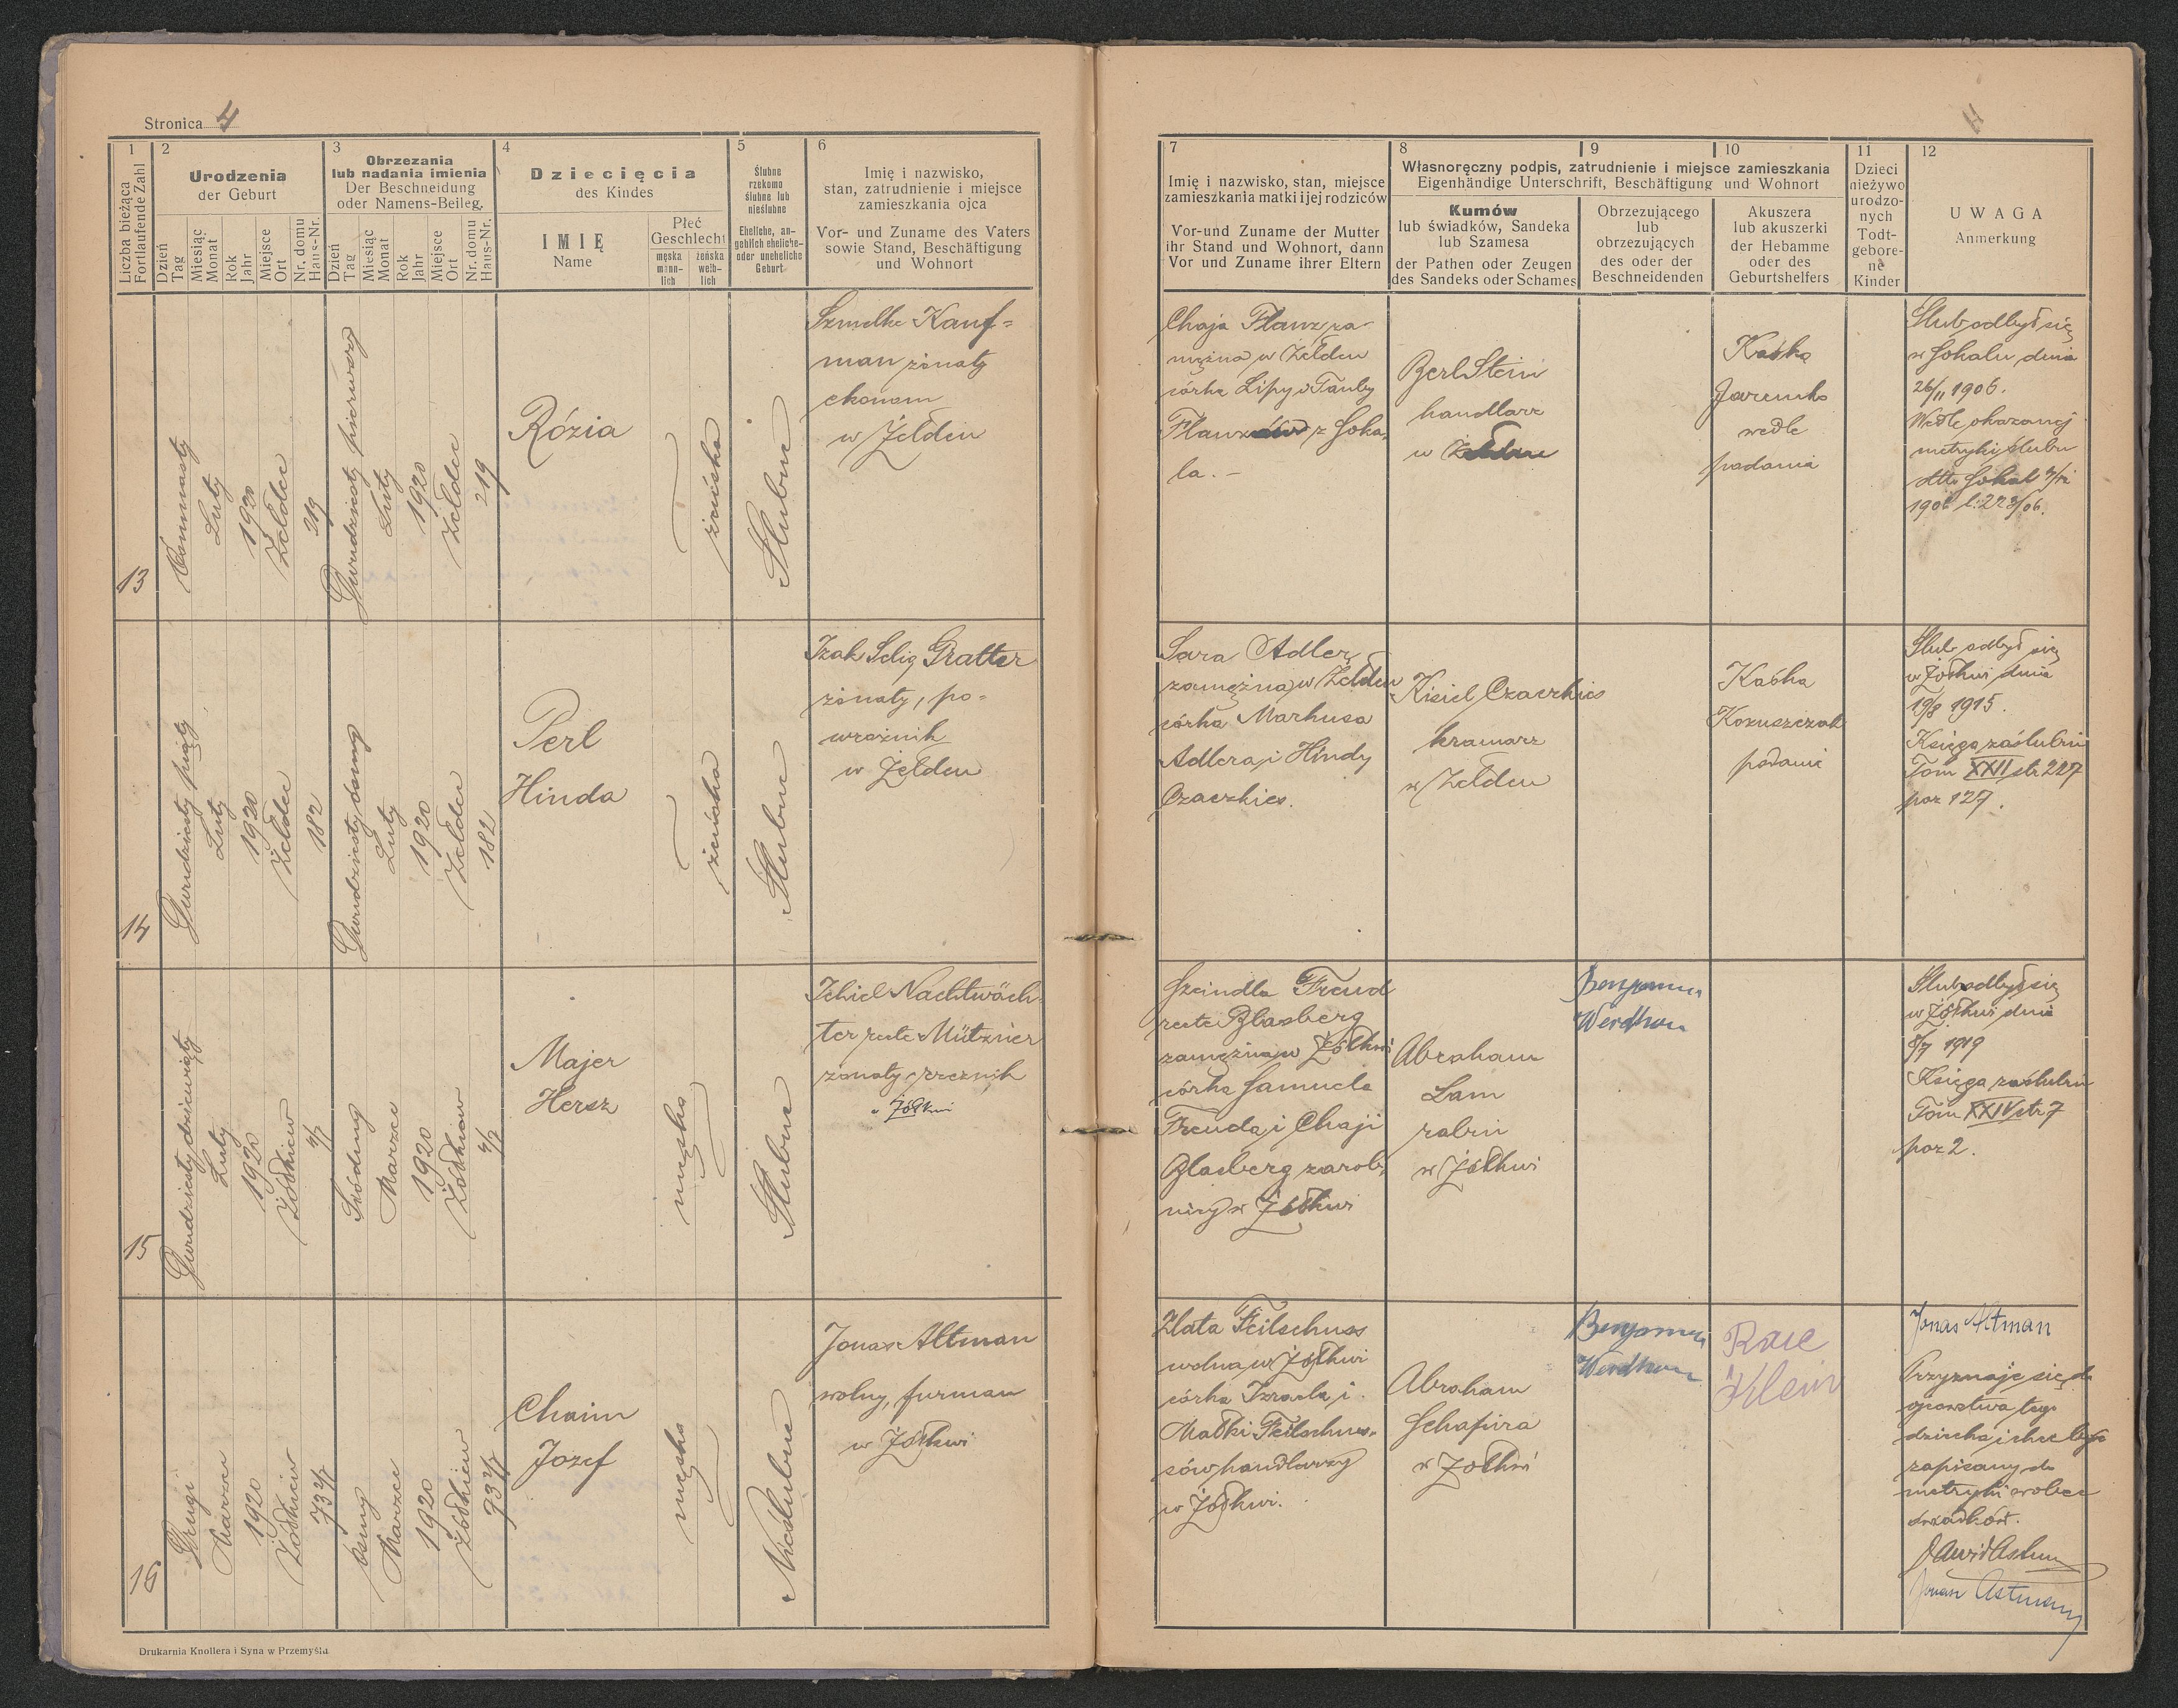 Stronica 4
1
Liczba bieżąca
Fortlaufende Zahl
2
Urodzenia
der Geburt
Dzień
Tag
Miesiąc
Monat
Rok
Jahr
Miejsce
Ort
Nr. domu
Haus-Nr.
3
Obrzezania
lub nadania imienia
Der Beschneidung
oder Namens-Beileg.
Dzień
Tag
Miesiąc
Monat
Rok
Jahr
Miejsce
Ort
Nr. domu
Haus-Nr.
4
Dziecięcia
des Kindes
IMIĘ
Name
Płeć
Geschlecht
męska
männ-
lich
żeńska
weib-
lich
5
Ślubne
rzekomo
ślubne lub
nieślubne
Eheliche, an-
geblich eheliche-
oder uneheliche
Geburt
6
Imię i nazwisko,
stan, zatrudnienie i miejsce
zamieszkania ojca
Vor- und Zuname des Vaters
sowie Stand, Beschäftigung
und Wohnort
7
Imię i nazwisko, stan, miejsce
zamieszkania matki i jej rodziców
Vor-und Zuname der Mutter
ihr Stand und Wohnort, dann
Vor und Zuname ihrer Eltern
8
9
10
Własnoręczny podpis, zatrudnienie i miejsce zamieszkania
Eigenhändige Unterschrift, Beschäftigung und Wohnort
Kumów
lub świadków, Sandeka
lub Szamesa
der Pathen oder Zeugen
des Sandeks oder Schames
Obrzezującego
lub
obrzezujących
des oder der
Beschneidenden
Akuszera
lub akuszerki
der Hebamme
oder des
Geburtshelfers
11
Dzieci
nieżywo
urodzo-
nych
Todt-
gebore-
ne
Kinder
12
UWAGA
Anmerkung
13
Luty
1920
Żełdec
219
Dwudziesty pierwszy
Luty
1920
Żełdec
219
Rózia
żeńska
Ślubne
Szmelke Kauf=
man żonaty
ekonom
w Żełdcu
Chaja Flanz za
mężna w Żełdcu
córka Lipy i Tauby
z Soka,
la. -
Berl Stein
handlarz
w
Kaśka
Jaremko
wedle
podania
Ślub odbył się
w Sokalu dnia
26/11 1906.
Wedle okazanej
metryki ślubu
dtto Sokal
14
Dwudziesty piąty
Luty
1920
Żełdec
182
Dwudziesty ósmy
Luty
1920
Żełdec
182
Perl
Hinda
żeńska
Ślubne
Izak Selig Gratter
żonaty, po=
wroźnik
w Żełdcu
Sara Adler,
zamężna w Żełdcu
córka Markusa
Adlera i Hindy
Czaczkies.
Kisiel Czaczkies
kramarz
w Żełdcu
Kaśka
Kozuszczak
podanie
Ślub odbył się
w Żółkwi dnia
19/8 1915.
Księga zaślubin
Tom XXII str 227
poz 127.
15
Dwudziesty dziewiąty
Luty
1920
Żółkiew
Siódmy
Marzec
1920
Żółkiew
Majer
Hersz
męska
Ślubne
Jehiel Nachtwäch-
ter recte Mützner
żonaty, rzeźnik
w Żółkwi
Szeindla Freud
recte Blasberg
zamężna w Żółkwi
córka Samuela
Freuda i Chaji
Blasberg zarob,
nicy w Żółkwi
Abraham
Lam
rabin
w Żółkwi
Ślub odbył się
w Żółkwi dnia
8/7 1919
Księga zaślubin
Tom XXIV str 7
poz 2.
16
Drugi
Marzec
1920
Żółkiew
Ósmy
Marzec
1920
Żółkiew
Chaim
Jozef
męska
Nieślubne
Jonas Altman
wolny, furman
w Żółkwi
Zlata Feilschuss
wolna w Żółkwi
córka Izraela i
Małki Feilschus-
sów handlarzy
w Żółkwi.
Abraham
Schapira
w Żółkwi
Klein
Jonas Altman
Przyznaje się do
ojcostwa tego
dziecka i chce być
zapisany do
metryki wobec
świadków.
Drukarnia Knollera i Syna w Przemyślu